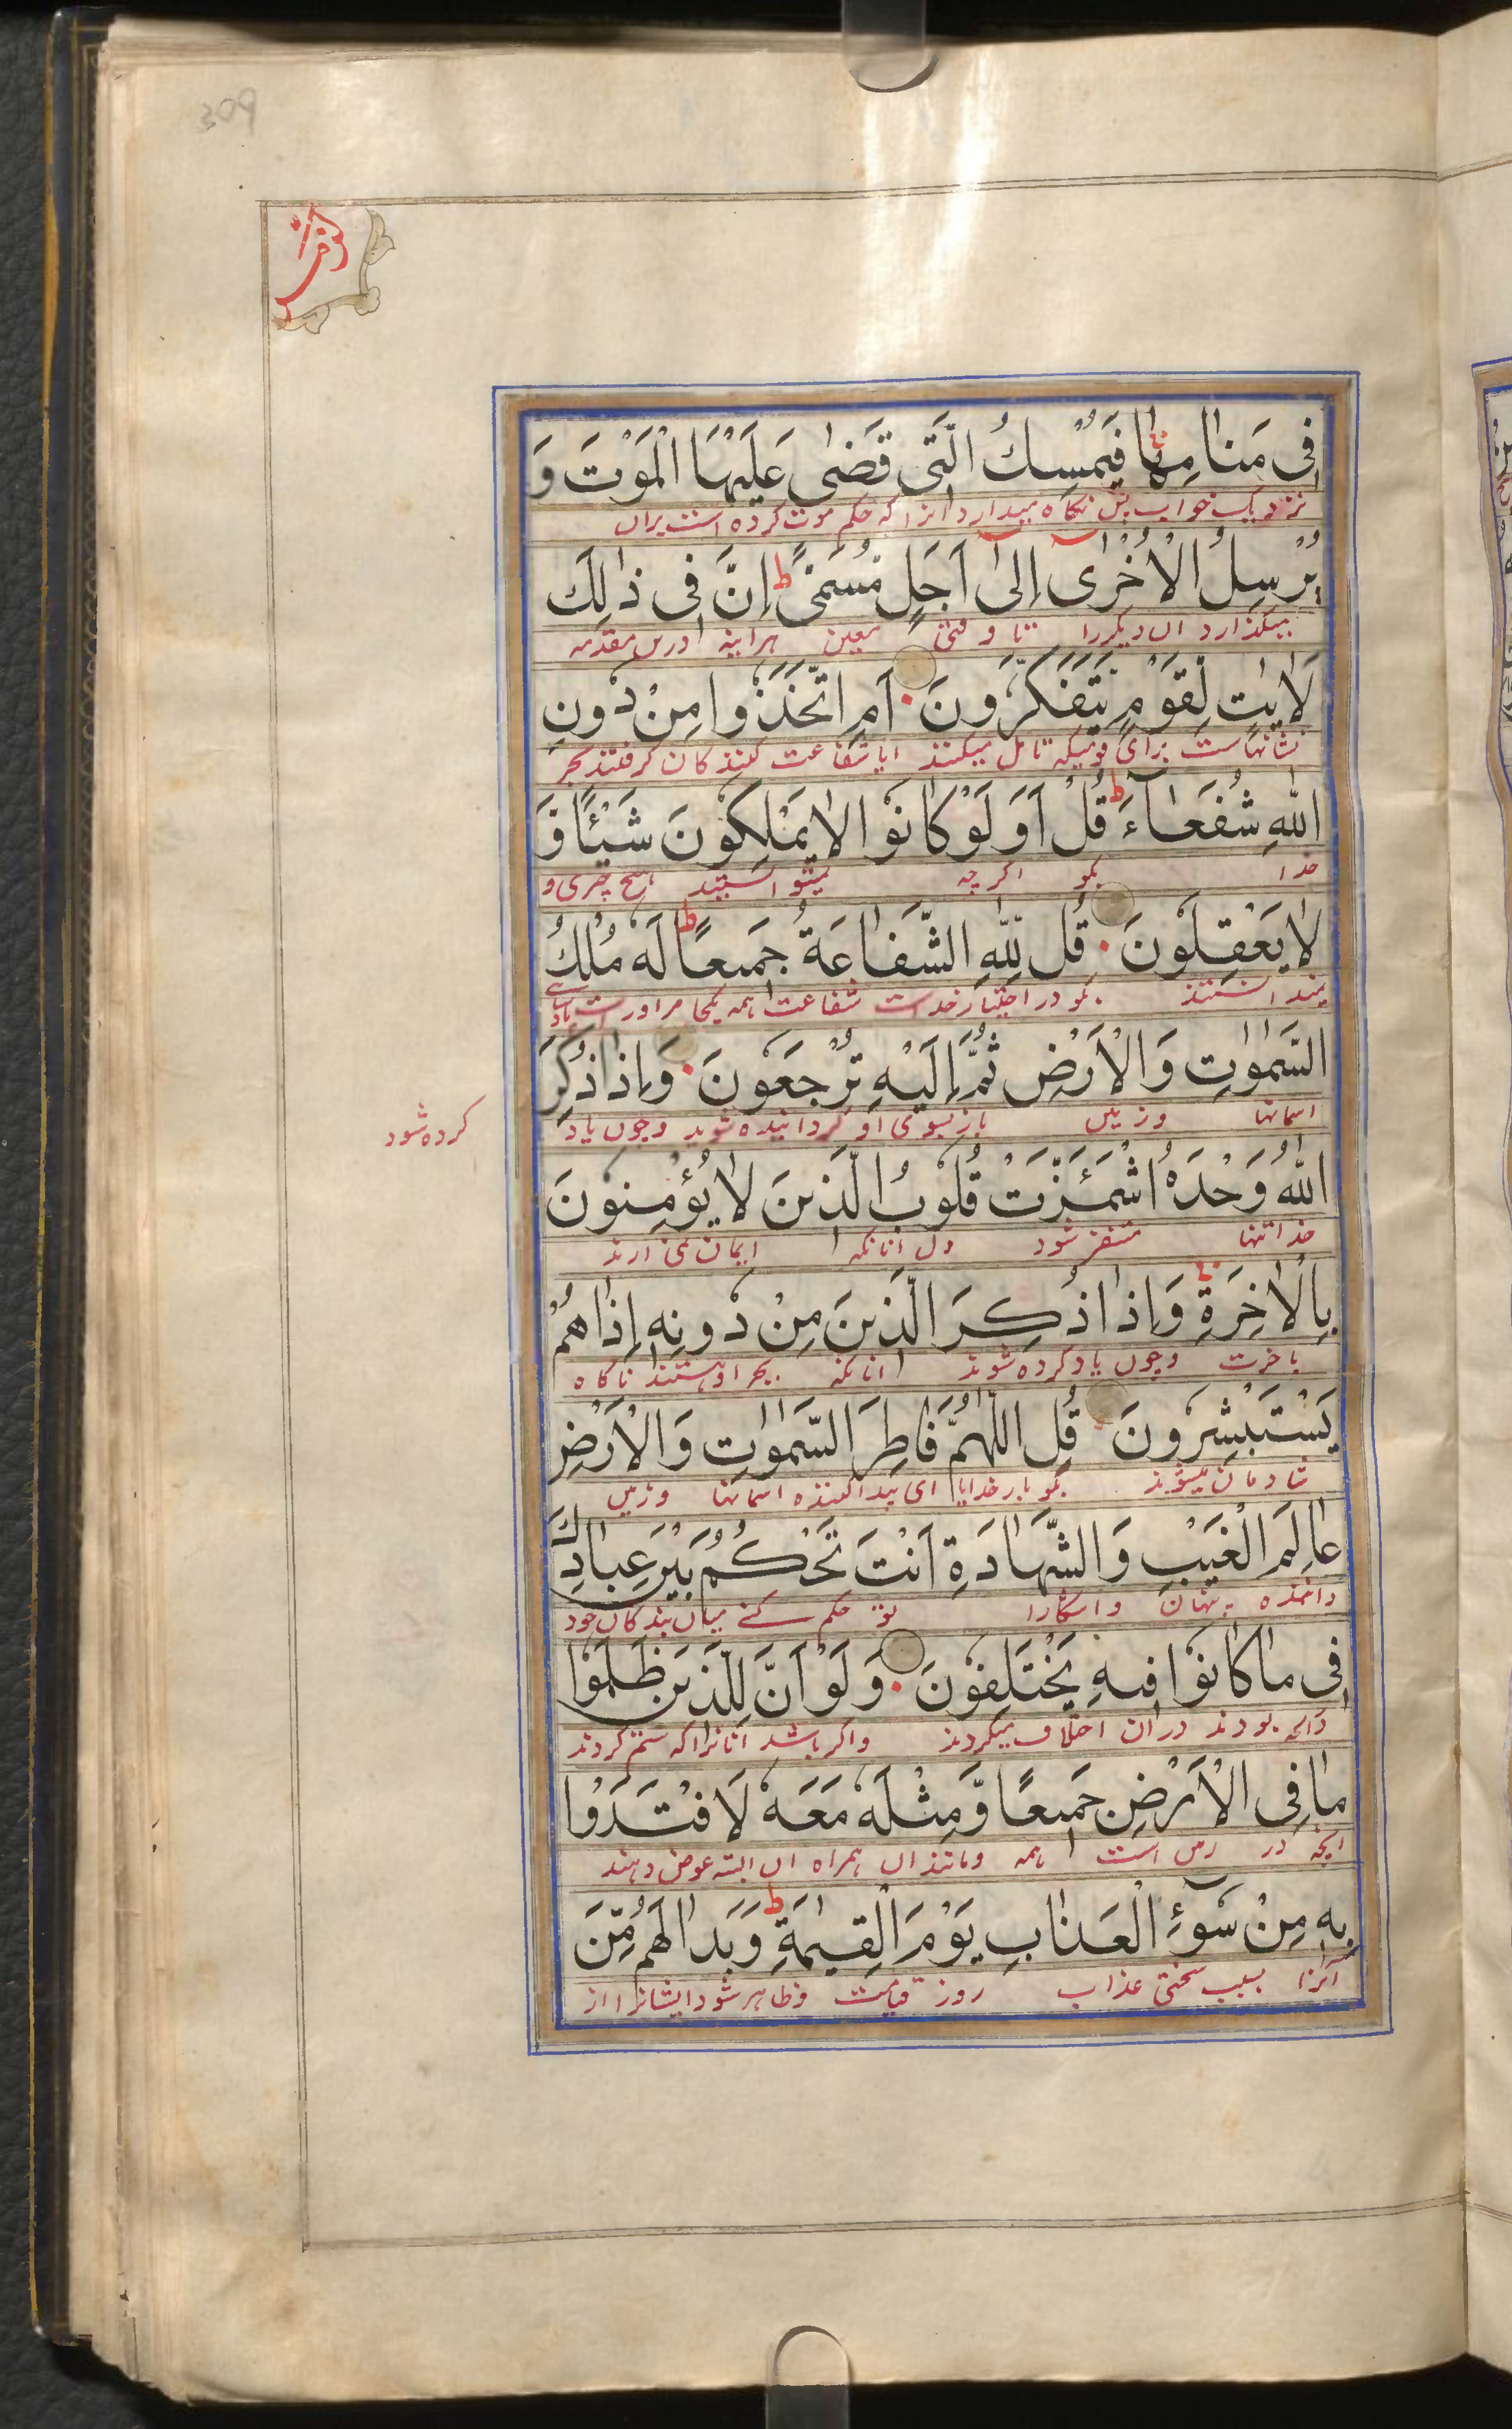 309
الزمر
فِى مَنَامِهَا فَيُمْسِكُ الَّتِى قَضٰى عَلَيْهَا الْمَوْتَ وَ
نزدیک خواب پس نگاه میدارد انرا که حکم موت کرده است بران
يُرْسِلُ الْاُخْرٰٓى اِلٰٓى اَجَلٍ مُّسَمًّى ط اِنَّ فِى ذٰلِكَ
میکذارد ان دیکررا تا وقتی معین هراینه درین مقدمه
لَاٰيٰتٍ لِّقَوْمٍ يَّتَفَكَّرُونَ اَمِ اتَّخَذُوا مِنْ دُونِ
نشانهاست برای قومیکه تامل میکنند ایا شفاعت کنندکان کرفتند بجز
اللّٰهِ شُفَعَآءَ ط قُلْ اَوَ لَوْ كَانُوا لَا يَمْلِكُونَ شَيْئًا وَّ
خدا بکو اکرچه نمیتوانستند هیچ چیزی و
لَا يَعْقِلُونَ قُل لِّلّٰهِ الشَّفَاعَةُ جَمِيعًا ط لَهُ مُلْكُ
نمیدانستند بکو در اختیار خداست شفاعت همه یکجا مر اوراست
السَّمٰوٰتِ وَالْاَرْضِ ثُمَّ اِلَيْهِ تُرْجَعُونَ وَاِذَا ذُكِرَ
اسمانها وزمین باز بسوی او کردانیده شوید وچون یاد
کرده شود
اللّٰهُ وَحْدَهُ اشْمَئَزَّتْ قُلُوبُ الَّذِينَ لَا يُؤْمِنُونَ
خدا تنها متنفر شود دل انانکه ایمان نمی ارند
بِالْاٰخِرَةِ وَاِذَا ذُكِرَ الَّذِينَ مِنْ دُونِهِ اِذَا هُمْ
باخرت وچون یاد کرده شوند انانکه بجز او هستند ناکاه
يَسْتَبْشِرُونَ قُلِ اللّٰهُمَّ فَاطِرَ السَّمٰوٰتِ وَالْاَرْضِ
شادمان میشوند بکو بارخدایا ای پیدا کننده اسمانها وزمین
عَالِمَ الْغَيْبِ وَالشَّهَادَةِ اَنْتَ تَحْكُمُ بَيْنَ عِبَادِكَ
داننده پنهان واشکارا تو حکم کنے میان بندکان خود
فِى مَا كَانُوا فِيهِ يَخْتَلِفُونَ وَلَوْ اَنَّ لِلَّذِينَ ظَلَمُوا
بودند دران اختلاف میکردند واکر باشد انانرا که ستم کردند
مَا فِى الْاَرْضِ جَمِيعًا وَّمِثْلَهُ مَعَهُ لَافْتَدَوْا
انچه در زمین است همه ومانند ان همراه ان البته عوض دهند
بِهِ مِنْ سُوٓءِ الْعَذَابِ يَوْمَ الْقِيٰمَةِ ط وَبَدَا لَهُم مِّنَ
انرا بسبب سختی عذاب روز قیامت وظاهر شود ایشانرا از